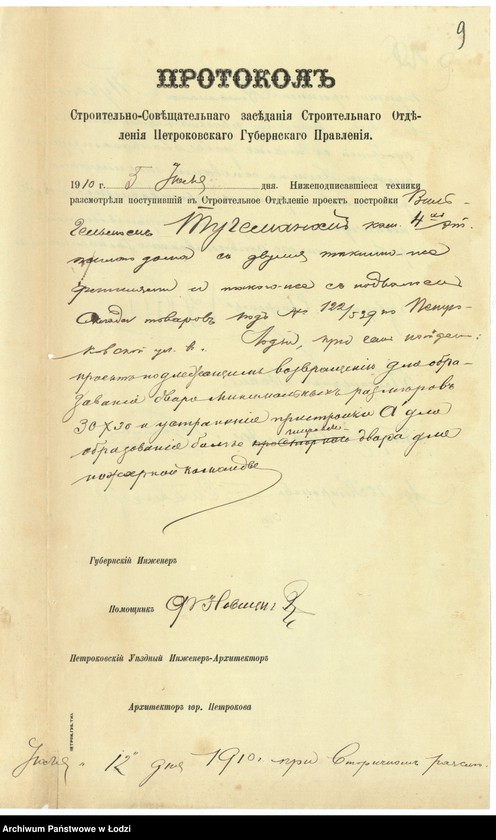 9
ПРОТОКОЛЪ
Строительно-Совѣщательнаго засѣданія Строительнаго Отдѣ-
ленія Петроковскаго Губернскаго Правленія.
1910 г. 5 Іюля дня. Нижеподписавшіеся техники
разсмотрѣли поступившій въ Строительное Отдѣленіе проектъ постройки Виль-
гельмомъ кам. 4
дома съ двумя таковыми-же
флигелями и такого-же съ подваломъ
склада товаровъ подъ № 122/529 по Петро-
ковской ул. в. Лодзи, при чемъ найденъ:
проектъ подлежащимъ возвращенію для обра-
зованія двора минимальныхъ размѣровъ
30×30 и устраненіе пристройки А для
образованія болѣе двора для
пожарной команды
Губернскій Инженеръ
Помощникъ
Петроковскій Уѣздный Инженеръ-Архитекторъ
Архитекторъ гор. Петрокова
ПЕТРОК.ГУБ.ТИП.
Іюля 12 дня 1910 г. при вторичномъ
Archiwum Państwowe w Łodzi